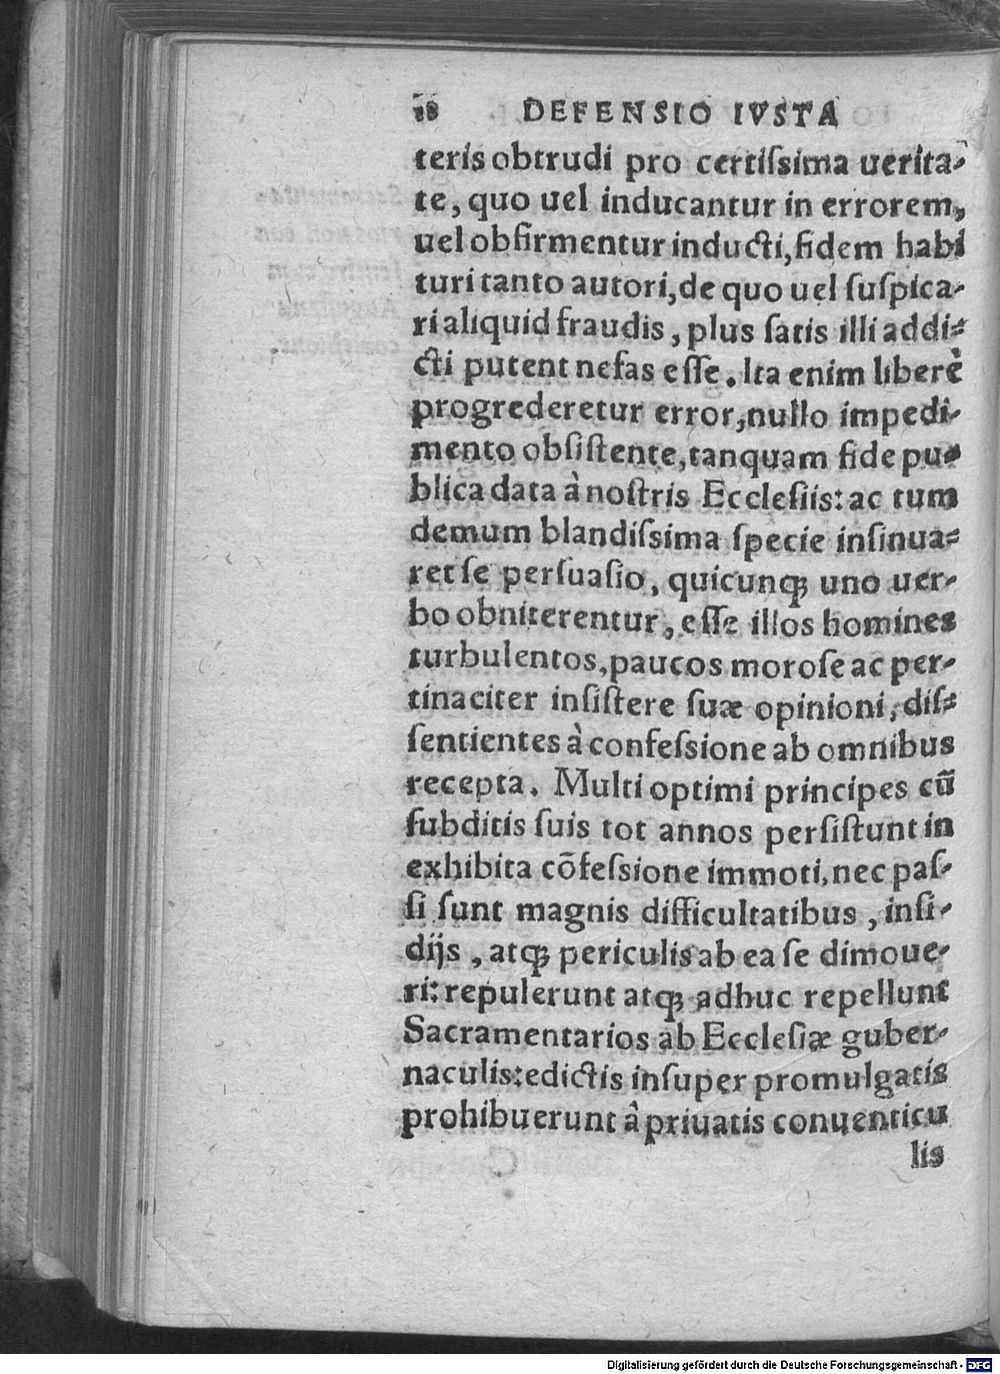 18 DEFENSIO IVSTA
teris obtrudi pro certiſsima uerita-
te, quo uel inducantur in errorem,
uel obfirmentur inducti, fidem habi
turi tanto autori, de quo uel ſuſpica-
ri aliquid fraudis, plus ſatis illi addi-
cti putent nefas eſſe. Ita enim liberè
progrederetur error, nullo impedi-
mento obſiſtente, tanquam fide pu-
blica data à noſtris Eccleſiis: ac tum
demum blandiſsima ſpecie inſinua-
ret ſe perſuaſio, quicunqꝫ uno uer-
bo obniterentur, eſſe illos homines
turbulentos, paucos moroſe ac per-
tinaciter inſiſtere ſuæ opinioni, diſ-
ſentientes à confeſsione ab omnibus
recepta. Multi optimi principes cū
ſubditis ſuis tot annos perſiſtunt in
exhibita cōfeſsione immoti, nec paſ-
ſi ſunt magnis difficultatibus, inſi-
dijs, atqꝫ periculis ab ea ſe dimoue-
ri: repulerunt atqꝫ adhuc repellunt
Sacramentarios ab Eccleſiæ guber-
naculis: edictis inſuper promulgatis
prohibuerunt à priuatis conuenticu
lis
Digitalisierung gefördert durch die Deutsche Forschungsgemeinschaft - DFG